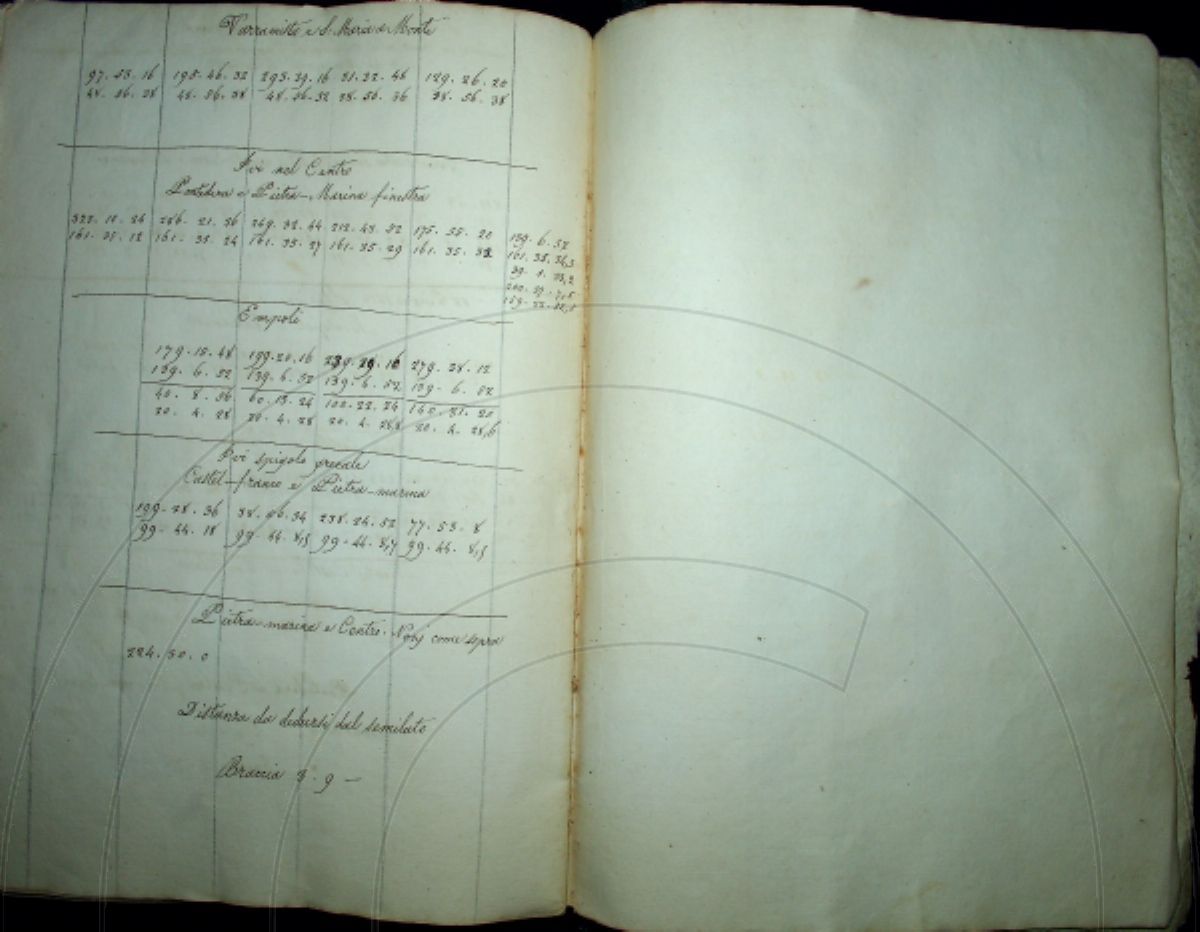 Varramista e S. Maria a Monte
97. 53. 16 195. 46. 32 293. 29. 16 31. 22. 46 129. 26. 20
48. 56. 38 48. 56. 38 48. 56. 32 38. 56. 36 38. 56. 38
Ivi nel Centro
Pontedera e Pietra-Marina finestra
322. 10. 24 286. 21. 36 249. 32. 44 212. 43. 52 175. 55. 20 139. 6. 52
161. 35. 12 161. 35. 24 161. 35. 27 161. 35. 29 161. 35. 32 161. 35. 34,3
39. 1. 23,2
200. 37. 7,5
159. 22. 52,5
Empoli
179. 15. 48 199. 20. 16 239. 29. 16 279. 38. 12
139. 6. 52 139. 6. 52 139. 6. 52 139. 6. 52
40. 8. 56 60. 13. 24 100. 22. 24 140. 31. 20
20. 4. 28 20. 4. 28 20. 4. 28,8 20. 4. 28,6
Ivi spigolo
Castel-franco e Pietra-marina
199. 28. 36 38. 56. 34 238. 24. 52 77. 53. 8
99. 44. 18 99. 44. 8,5 99. 44. 8,7 99. 44. 8,5
Pietra-marina e Centro. come sopra
224. 30. 0
Distanza da dedursi dal semilato
Braccia 3. 9 —